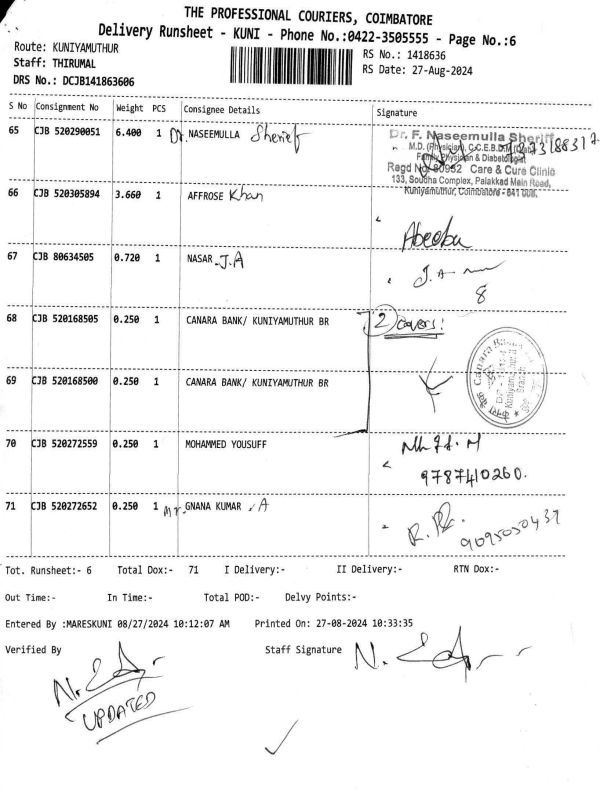 THE PROFESSIONAL COURIERS, COIMBATORE
Delivery Runsheet - KUNI - Phone No.:0422-3505555 - Page No.:6
Route: KUNIYAMUTHUR
Staff: THIRUMAL
DRS No.: DCJB141863606
RS No.: 1418636
RS Date: 27-Aug-2024
S No Consignment No Weight PCS Consignee Details Signature
65 CJB 520290051 6.400 1 Dr. NASEEMULLA Sherief
Dr. F. Naseemulla Sheriff
M.D. (Physician), C.C.E.B.D.M.
Family Physician & Diabetologist
Regd No. 80952 Care & Cure Clinic
133, Soudha Complex, Palakkad Main Road,
Kuniyamuthur, Coimbatore - 641 008.
66 CJB 520305894 3.660 1 AFFROSE Khan
Abeeba
67 CJB 80634505 0.720 1 NASAR J.A
J.A
8
68 CJB 520168505 0.250 1 CANARA BANK/ KUNIYAMUTHUR BR 2 covers!
69 CJB 520168500 0.250 1 CANARA BANK/ KUNIYAMUTHUR BR
Canara Bank
Kuniyamuthur
Branch
70 CJB 520272559 0.250 1 MOHAMMED YOUSUFF
9787410260.
71 CJB 520272652 0.250 1 Mr. GNANA KUMAR .A
9095050437
Tot. Runsheet:- 6 Total Dox:- 71 I Delivery:- II Delivery:- RTN Dox:-
Out Time:- In Time:- Total POD:- Delvy Points:-
Entered By :MARESKUNI 08/27/2024 10:12:07 AM Printed On: 27-08-2024 10:33:35
Verified By Staff Signature
UPDATED